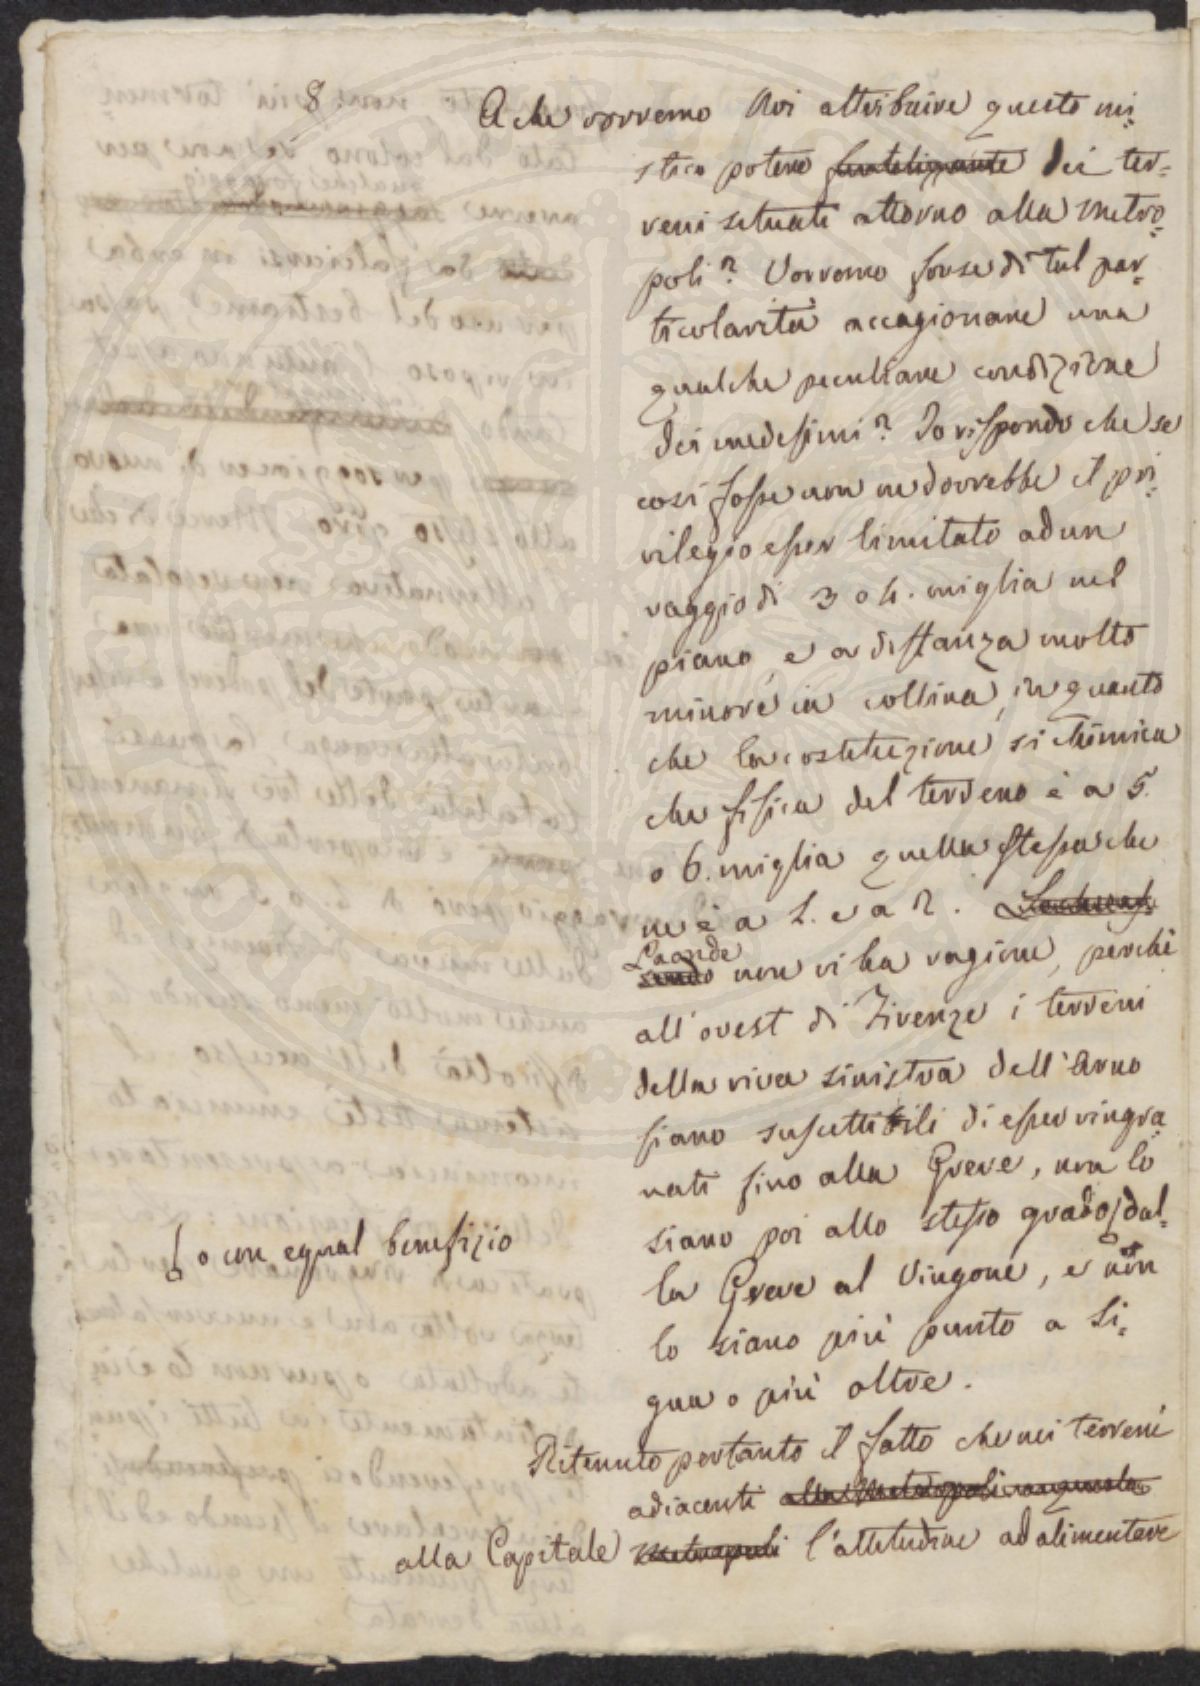 8.
A che vorremo Noi attribuire questo mi=
stico potere dei ter=
reni situati attorno alla metro=
poli? Vorremo forse di tal par=
ticolarità accagionare una
qualche peculiare condizione
dei medesimi? Io rispondo che se
così fosse non ne dovrebbe il pri=
vilegio esser limitato ad un
raggio di 3 o 4. miglia nel
piano, e a distanza molto
minore in collina, in quanto
che la costituzione sì chimica
che fisica del terreno è a 5.
o 6. miglia quella stessa che
ne è a 1. e a 2.
Laonde
non vi ha ragione, perchè
all'ovest di Firenze i terreni
della riva sinistra dell'Arno
siano suscettibili di esser ringra=
nati fino alla Greve, non lo
siano poi allo stesso grado dal=
o con egual benefizio
la Greve al Vingone, e non
lo siano più punto a Si=
gna o più oltre.
Ritenuto pertanto il fatto che nei terreni
adiacenti alla Metropoli
alla Capitale Metropoli l'attitudine ad alimentare